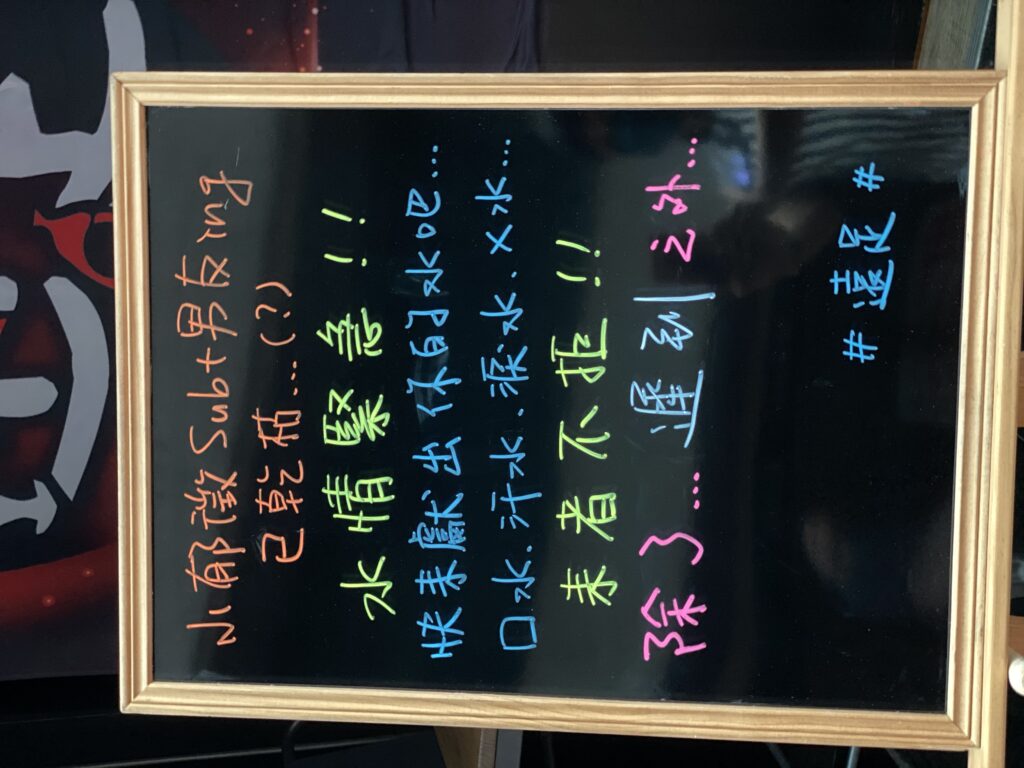 小郁徵Sub+男友ing
已乾枯…(?)
水情緊急!!
快來獻出你的水吧…
口水.汗水.淚水.X水…
來者不拒!!
除了…遲到之外…
#遠足#